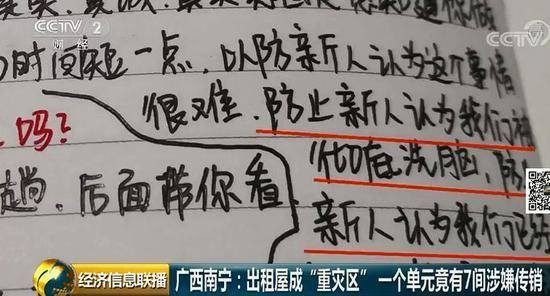 CCTV 2
财经
CCTV
时间短一点,以防新人认为这个事情
很难.防止新人认为我们
吗?
洗脑,防
趟,后面带你看
新人认为我们已
经济信息联播
广西南宁:出租屋成“重灾区” 一个单元竟有7间涉嫌传销